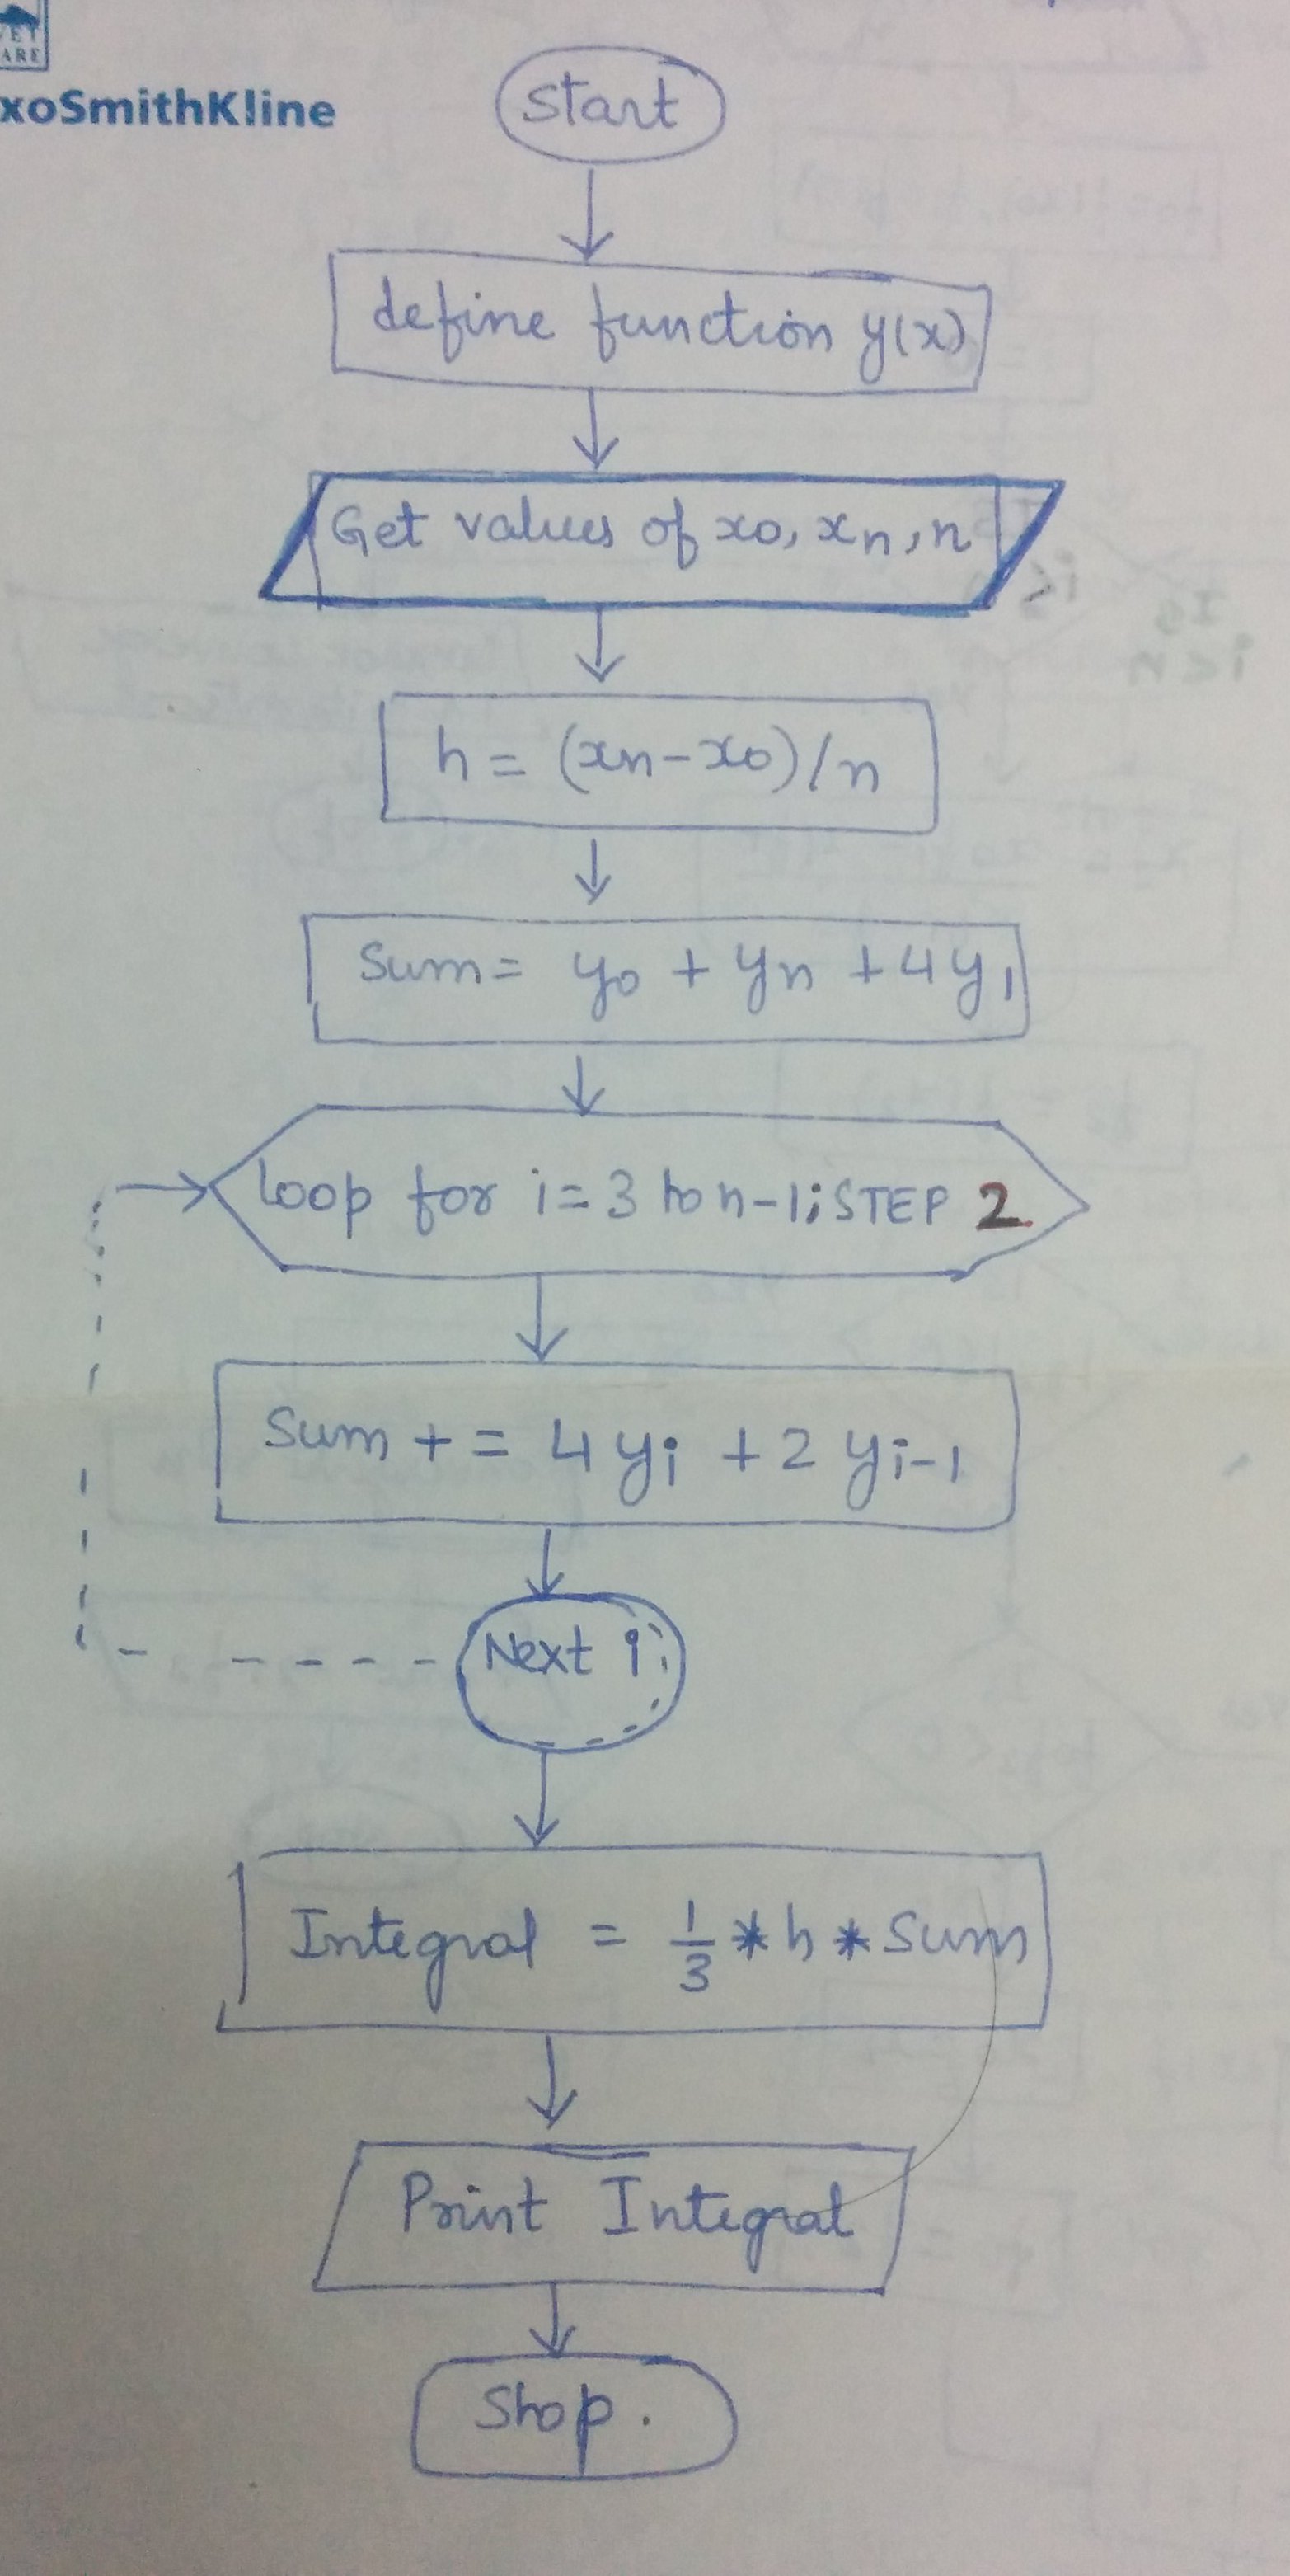 VET
ARE
xoSmithKline
Start
define function y(x)
Get values of x0, xn, n
h = (xn - x0)/n
Sum = y0 + yn + 4y1
loop for i = 3 to n-1; STEP 2
Sum + = 4 yi + 2 yi-1
Next i
Integral = 1/3 * h * Sum
Print Integral
Stop.